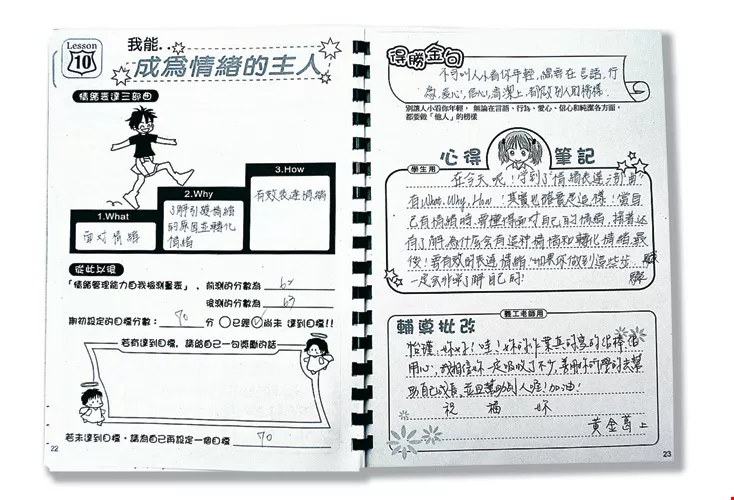 Lesson
10
我能..
成為情緒的主人
情緒表達三部曲
1.What
面對情緒
2.Why
了解引發情緒
的原因並轉化
情緒
3.How
有效表達情緒
從此以後
「情緒管理能力自我檢測量表」，前測的分數為 62
後測的分數為 63
期初設定的目標分數： 70 分 ○已經 ✓尚未 達到目標!!
若有達到目標，請給自己一句獎勵的話
若未達到目標，請為自己再設定一個目標 70
22
得勝金句
不可叫人小看你年輕，總要在言語，行
為，愛心，信心，清潔上，都做別人的榜樣
別讓人小看你年輕，無論在言語、行為、愛心、信心和純潔各方面，
都要做「他人」的榜樣
心得筆記
學生用
在今天呢！學到了情緒表達三部曲
有What、Why、How！其實也確實是這樣！當自
己有情緒時，要懂得面對自己的情緒，接著
有了解為什麼會有這種情緒和轉化情緒，最
後！要有效的表達情緒！如果你做到這些步驟
一定會非常了解自己的！
輔導批改
義工老師用
妳好！哇！妳的作業真的寫的很棒很
用心，我相信妳一定吸收了不少，善用你所學的去幫
助自己成長，並且幫助別人喔！加油！
祝福妳
黃金 上
23